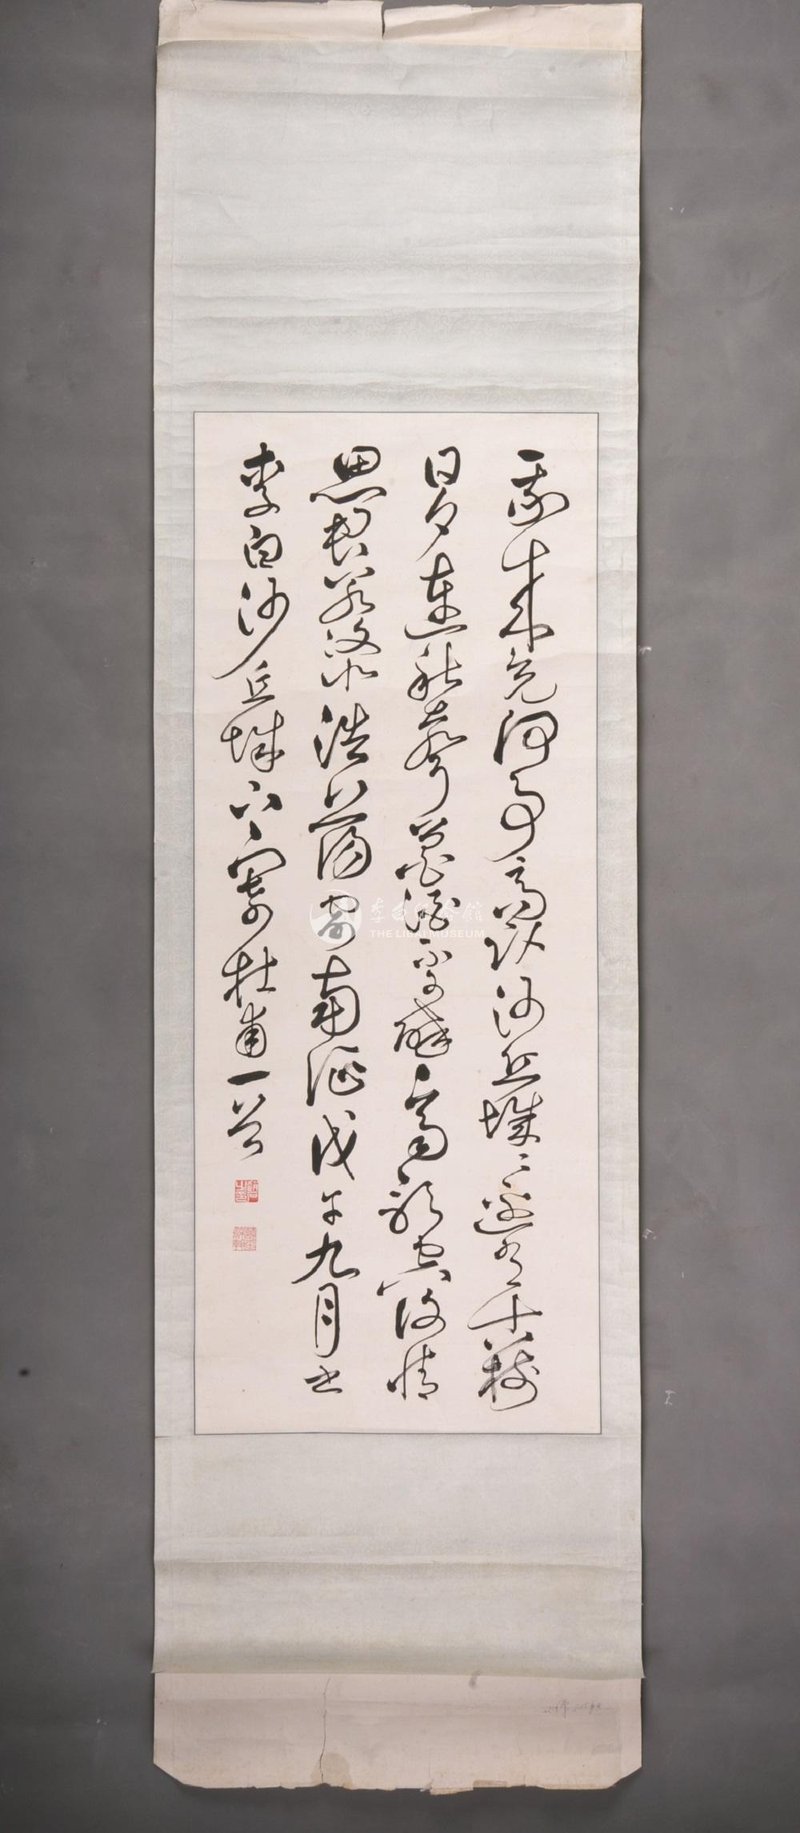 我来竟何事高卧沙丘城城边有古树
日夕连秋声鲁酒不可醉齐歌空复情
思君若汶水浩荡寄南征戊午九月书
李白沙丘城下寄杜甫一首
李白纪念馆
THE LIBAI MUSEUM